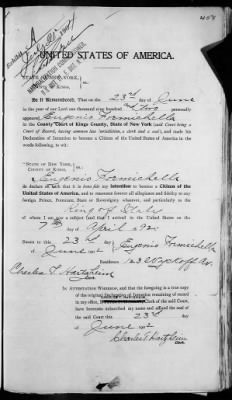 458
UNITED STATES OF AMERICA.
STATE OF NEW YORK,
OF KINGS, ss:
Be it Remembered, That on the 23rd day of June
in the year of our Lord one thousand nine hundred and two personally
appeared Eugenio Formichella
the County Court of Kings County, State of New York (said Court being a
Court of Record, having common law jurisdiction, a clerk and a seal), and made his
Declaration of Intention to become a Citizen of the United States of America in the
words following, to wit:
"STATE OF NEW YORK,
COUNTY OF KINGS, ss:
I, Eugenio Formichella
do declare on oath that it is bona fide my Intention to become a Citizen of the
United States of America, and to renounce forever all allegiance and fidelity to any
foreign Prince, Potentate, State or Sovereignty whatever, and particularly to the
King of Italy
of whom I am now a subject (and that I arrived in the United States on the
7th day of April
Sworn to this 23d day Eugenio Formichella
of June Residence 123 Wyckoff Av.
Charles T. Hartzheim
Clerk
IN ATTESTATION WHEREOF, and that the foregoing is a true copy
of the original Declaration of Intention remaining of record
in my office, Clerk of the said Court,
have hereunto subscribed my name and affixed the seal of
the said Court this 23rd day
of June
Charles T. Hartzheim
Clerk.